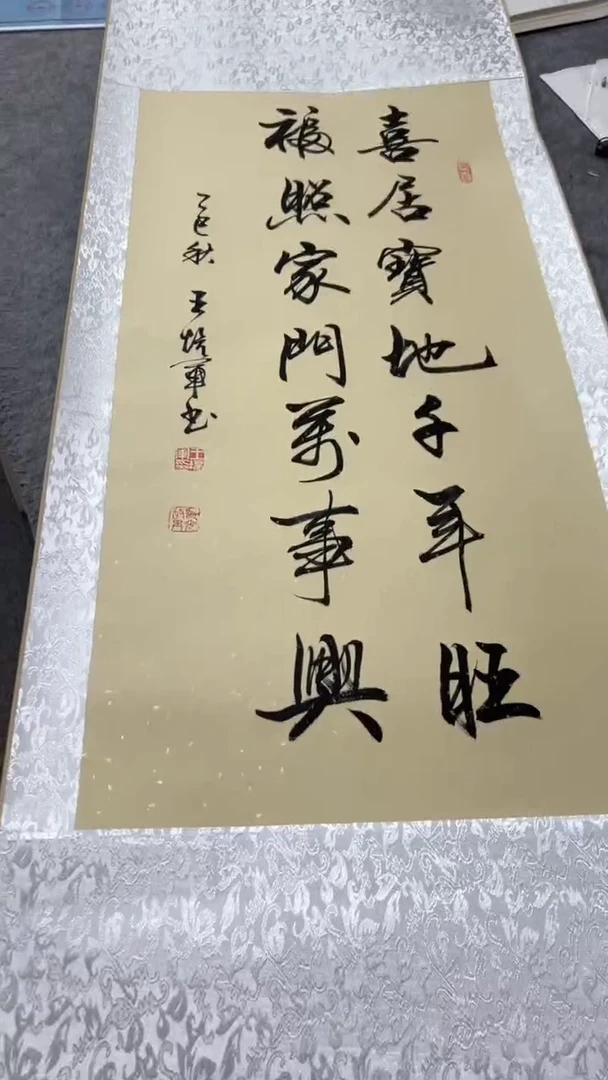 喜居寶地千年旺
福照家門萬事興
乙巳秋 王培軍书